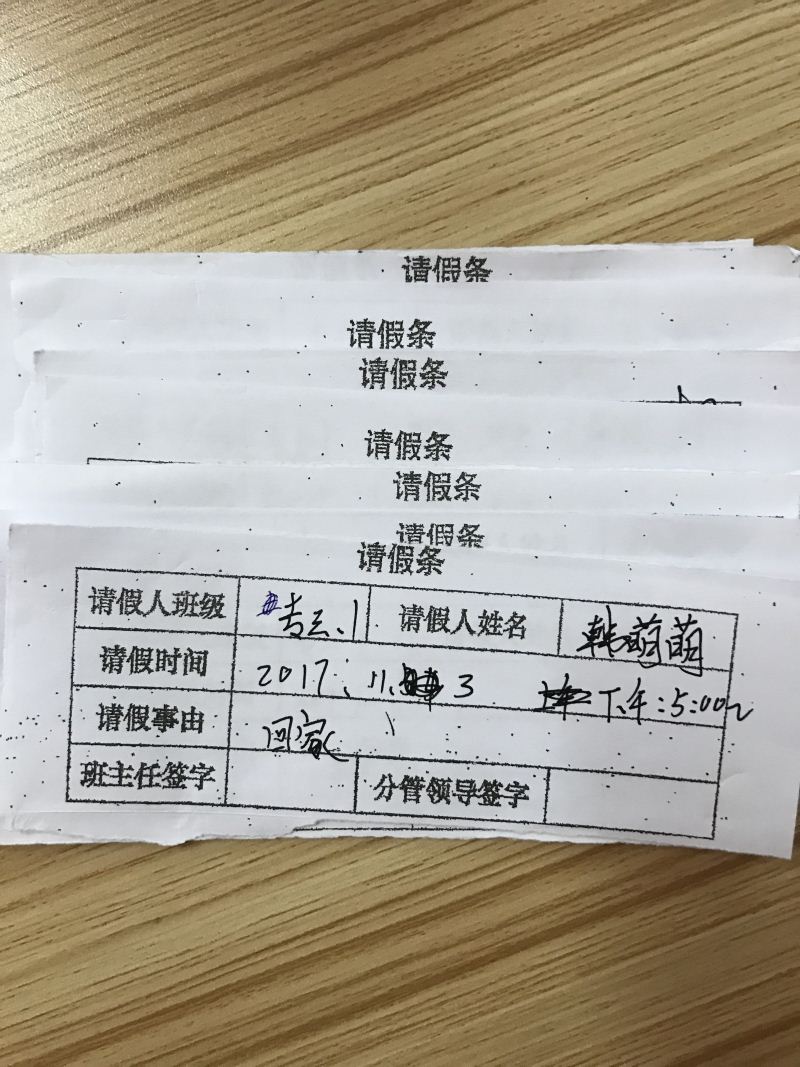 请假条
请假条
请假条
请假条
请假条
请假条
请假条
请假条人班级 专三、1 请假人姓名 韩萌萌
请假时间 2017、11、3 下午:5:00
请假事由 回家
班主任签字 分管领导签字